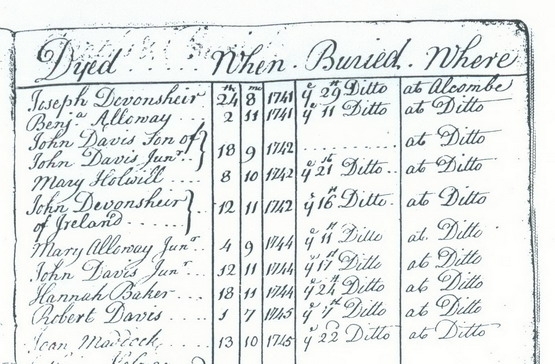 Dyed When Buried Where
Joseph Devonsheir 24th 8mo 1741 ye 29th Ditto at Alcombe
Benja Alloway 2 11 1741 ye 11 Ditto at Ditto
John Davis Son of
John Davis Junr 18 9 1742 at Ditto
Mary Holwill 8 10 1742 ye 21st Ditto at Ditto
John Devonsheir
of Ireland 12 11 1742 ye 16th Ditto at Ditto
Mary Alloway Junr 4 9 1744 ye 11th Ditto at Ditto
John Davis Junr 12 11 1744 ye 17th Ditto at Ditto
Hannah Baker 18 11 1744 ye 24th Ditto at Ditto
Robert Davis 1 7 1745 ye 4th Ditto at Ditto
Joan Maddock 13 10 1745 ye 22 Ditto at Ditto